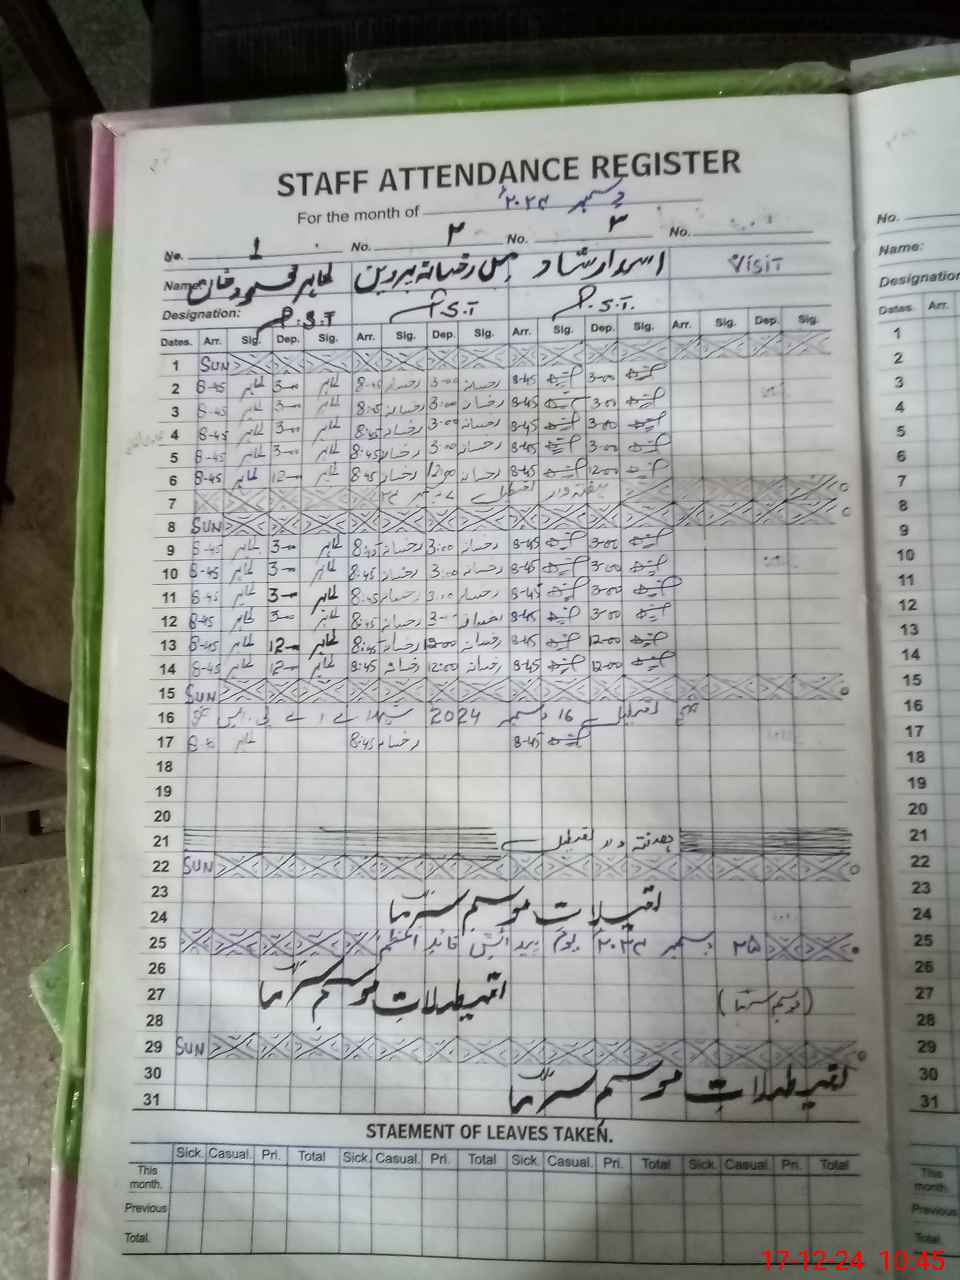 STAFF ATTENDANCE REGISTER
For the month of دسمبر ۲۰۲۴ء
No. 1 No. ۲ No. ۳ No.
Name: طاہر محمود خان مس رخسانہ پروین اسد ارشاد Visit
Designation: P.S.T P.S.T P.S.T.
Dates. Arr. Sig. Dep. Sig. Arr. Sig. Dep. Sig. Arr. Sig. Dep. Sig. Arr. Sig. Dep. Sig.
1 SUN
2 8-45 طاہر 3-00 طاہر 8:45 رخسانہ 3:00 رخسانہ 8-45 3-00
3 8-45 طاہر 3-00 طاہر 8:45 رخسانہ 3:00 رخسانہ 8-45 3-00
4 8-45 طاہر 3-00 طاہر 8:45 رخسانہ 3:00 رخسانہ 8-45 3-00
5 8-45 طاہر 3-00 طاہر 8:45 رخسانہ 3:00 رخسانہ 8-45 3-00
6 8-45 طاہر 12-00 طاہر 8:45 رخسانہ 12:00 رخسانہ 8-45 12-00
7 ہفتہ وار تعطیل
8 SUN
9 8-45 طاہر 3-00 طاہر 8:45 رخسانہ 3:00 رخسانہ 8-45 3-00
10 8-45 طاہر 3-00 طاہر 8:45 رخسانہ 3:00 رخسانہ 8-45 3-00
11 8-45 طاہر 3-00 طاہر 8:45 رخسانہ 3:00 رخسانہ 8-45 3-00
12 8-45 طاہر 3-00 طاہر 8:45 رخسانہ 3-00 رخسانہ 8-45 3-00
13 8-45 طاہر 12-00 طاہر 8:45 رخسانہ 12:00 رخسانہ 8-45 12-00
14 8-45 طاہر 12-00 طاہر 8:45 رخسانہ 12:00 رخسانہ 8-45 12-00
15 SUN
16 تعطیل 16 دسمبر 2024
17 8-45 طاہر 8:45 رخسانہ 8-45
18
19
20
21 ہفتہ وار تعطیل
22 SUN
23
24 تعطیلات موسم سرما
25 ۲۵ دسمبر ۲۰۲۴ یوم پیدائش قائد اعظم
26
27 تعطیلات موسم سرما (موسم سرما)
28
29 SUN
30 تعطیلات موسم سرما
31
STAEMENT OF LEAVES TAKEN.
Sick. Casual. Pri. Total Sick. Casual. Pri. Total Sick. Casual. Pri. Total Sick. Casual. Pri. Total
This month.
Previous
Total.
No.
Name:
Designation
Dates. Arr.
1
2
3
4
5
6
7
8
9
10
11
12
13
14
15
16
17
18
19
20
21
22
23
24
25
26
27
28
29
30
31
This month.
Previous
Total.
17-12-24 10:45